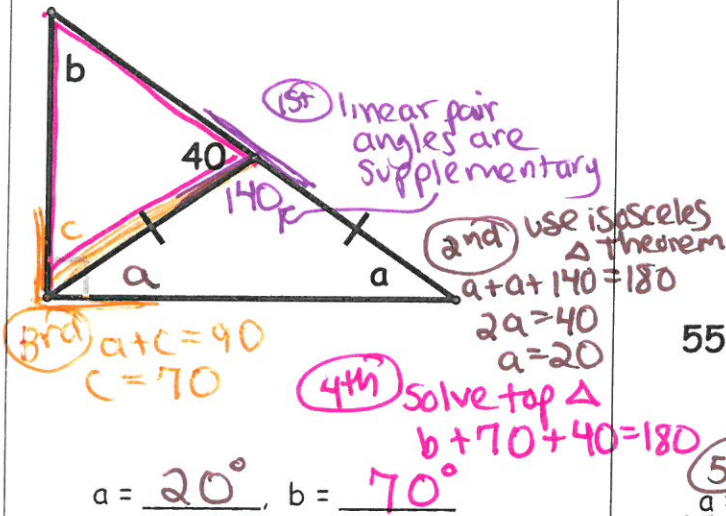 b
1st linear pair
angles are
supplementary
40
140
c
a
a
2nd use isosceles
Δ theorem
a+a+140=180
2a=40
a=20
3rd a+c=90
c=70
55
4th solve top Δ
b+70+40=180
5
a = 20°, b = 70°
a